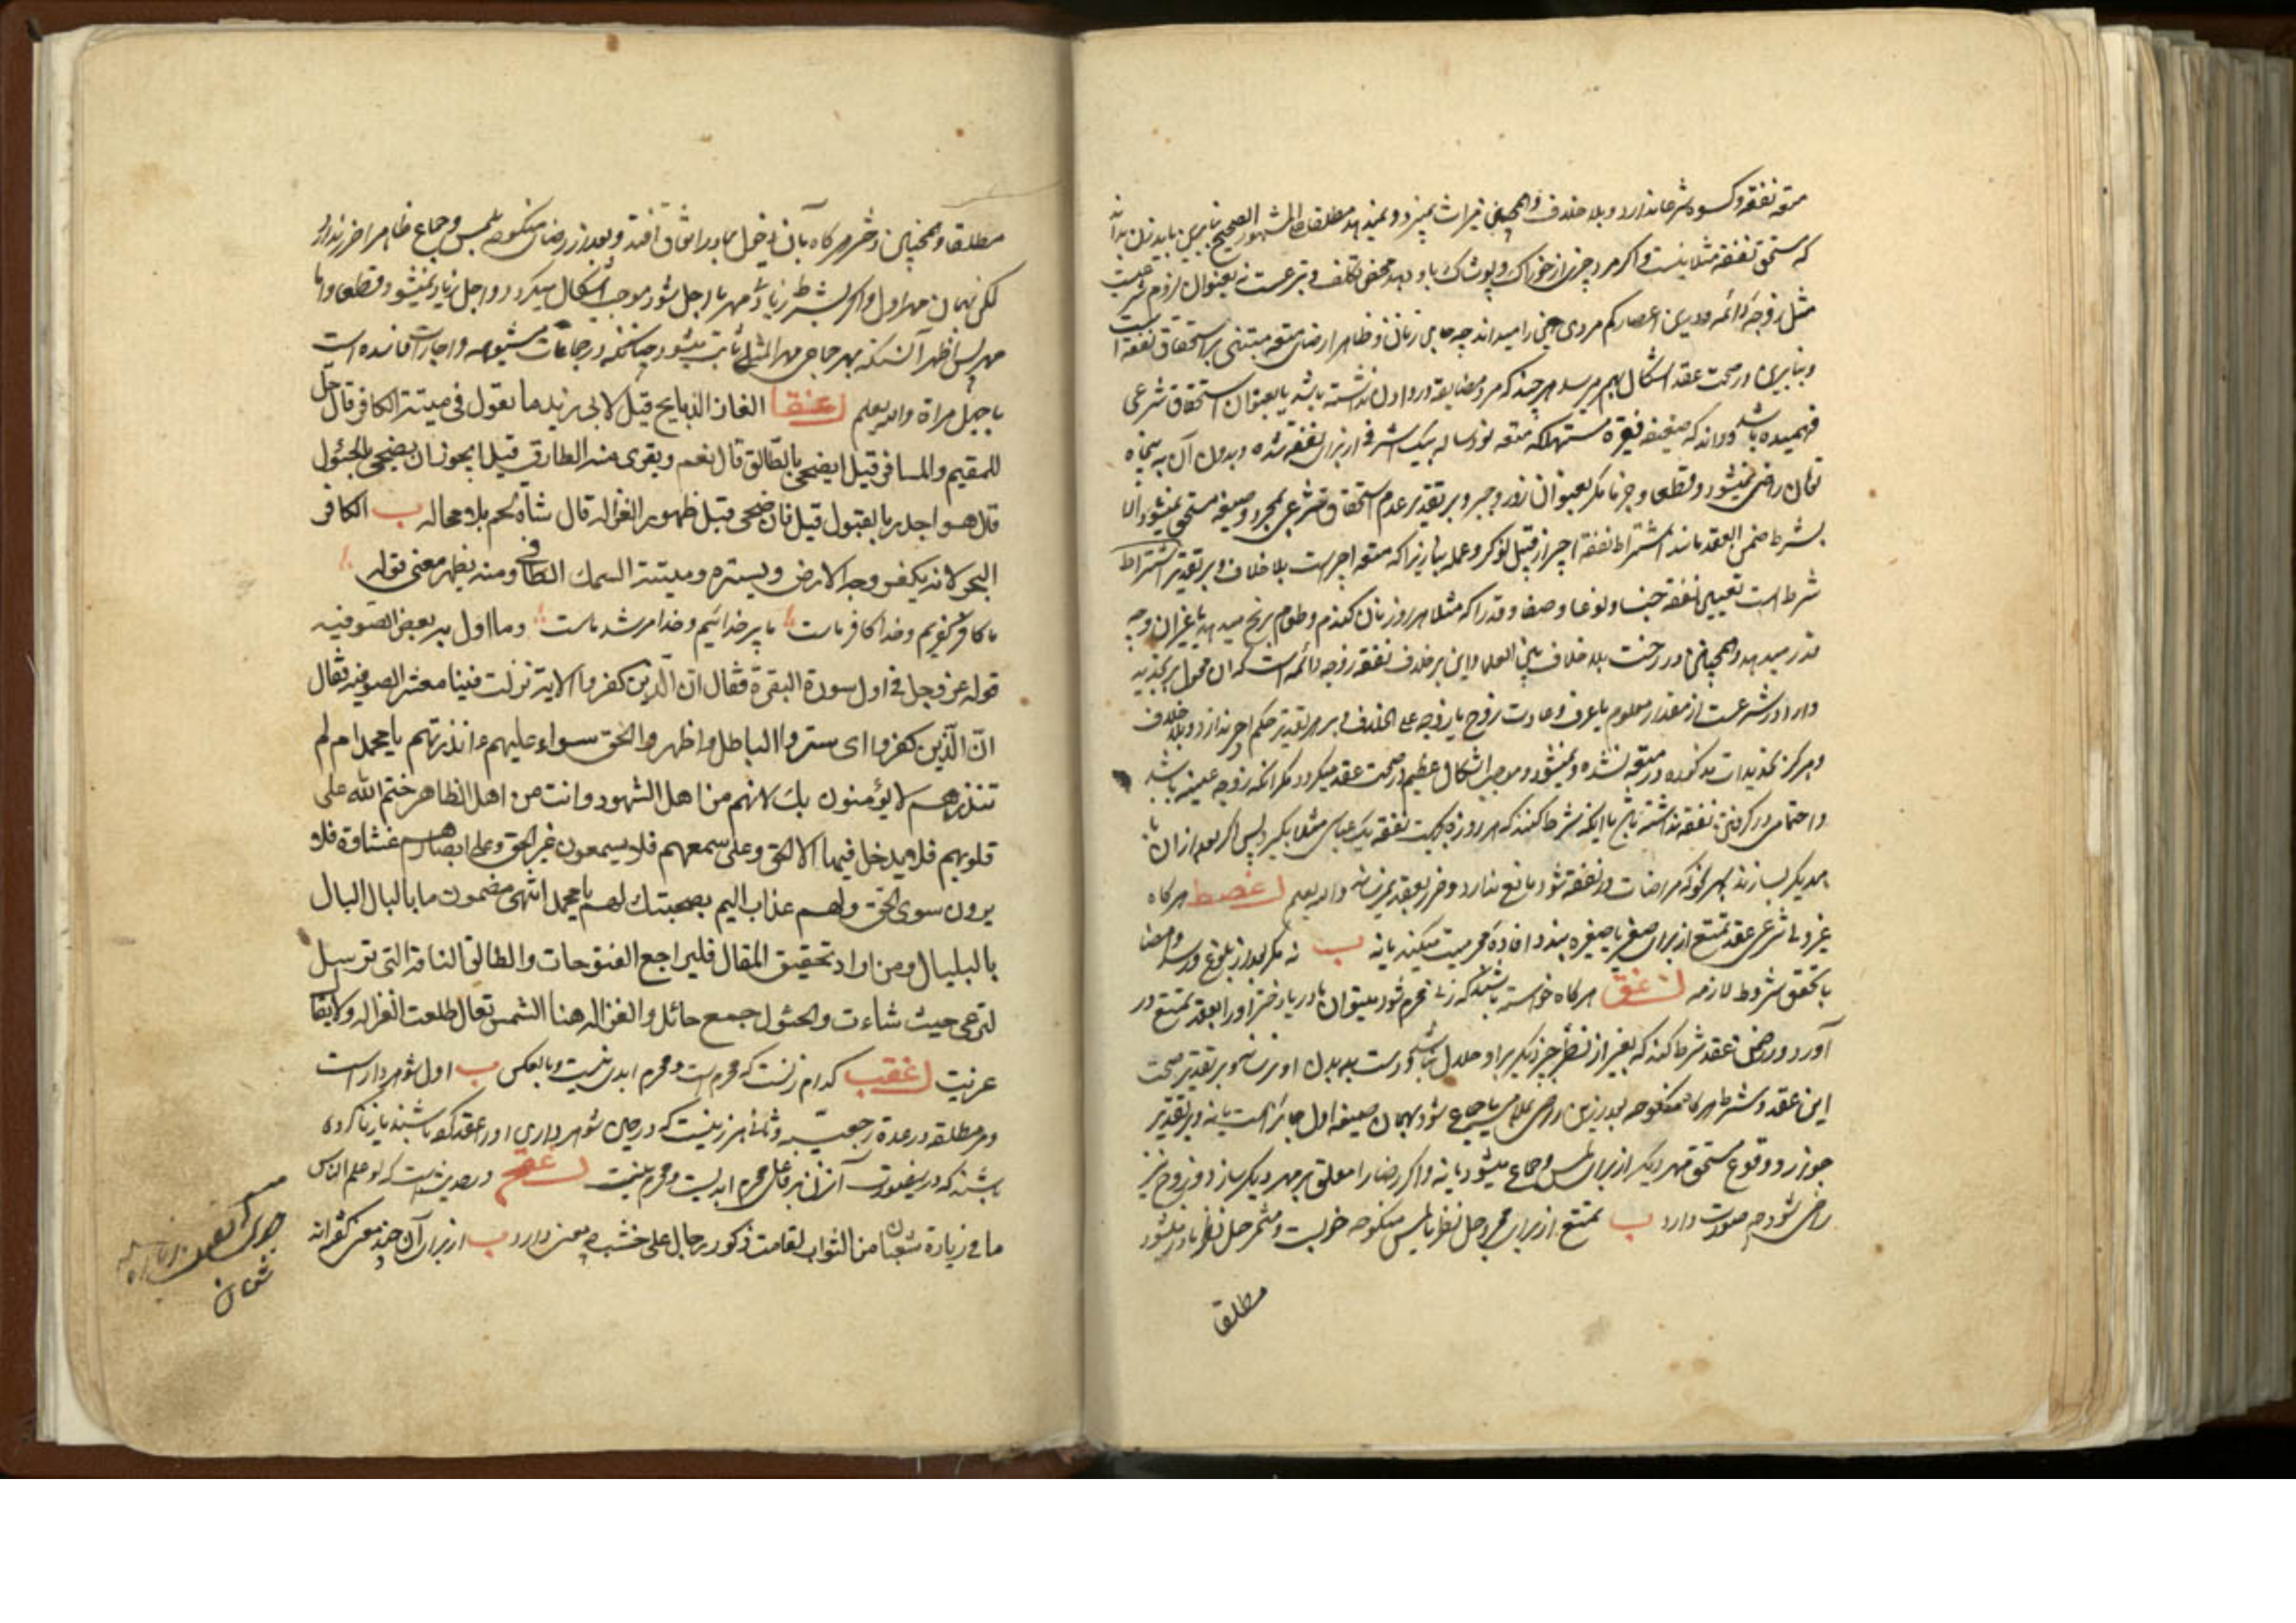 متعه نفقه و کسوه شرعا ندارد و بلا خلاف و همچنین میراث نمیبرد و نمیدهد مطلقا علی المشهور الصحیح بنابرین باید زن بداند
که مستحق نفقه مثلا نیست و اگر مرد چیزی از خوراک و پوشاک باو دهد محض تکلف و تبرعست نه بعنوان لزوم شرعیت
مثل زوجه دائمه و درین اعصار کم مردی این را میداند چه جای زنان و ظاهرا رضای متعه مبتنی بر استحقاق نفقه است
و بنابرین در صحت عقد اشکال بهم میرسد هر چند که مرد مضایقه در دادن نداشته باشد یا بعنوان استحقاق شرعی
فهمیده باشد و داند که ضعیفه فقیره مستهلکه متعه نود ساله بیک اشرفی از برای نفقه شده و بدون آن به پنجاه
تومان راضی نمیشود و قطعا و جزما مگر بعنوان زور و جبر و بر تقدیر عدم استحقاق شرعی بمجرد صیغه مستحق نمیشود الا
بشرط ضمن العقد مانند اشتراط نفقه اجیر از قبیل نوکر و عمله بنا زیرا که متعه اجیر است بلا خلاف و بر تقدیر اشتراط
شرط است تعیین نفقه جنسا و نوعا و وصفا و قدرا که مثلا هر روز نان گندم و طعام برنج میدهد یا غیر آن و چه
قدر میدهد و همچنین در رخت بلا خلاف بین العلما و این بر خلاف نفقه زوجه دائمه است که آن محول
در شرعست از مقدار معلوم یا عرف و عادت زوج یا زوجه علی الخلاف و بر هر تقدیر حکم اجیر ندارد و بلا خلاف
و هرگز تحدیدات مذکوره در متعه نشده و نمیشود و موجب اشکال عظیم در صحت عقد میگردد مگر آنکه زوجه باشد
و احتیاجی در گرفتن نفقه نداشته باشد یا اینکه شرط کنند که هر روزه بجهت نفقه یک عباسی مثلا بگیرد پس اگر بعد از آن با
همدیگر بسازند بهر نحو که مراضات در نفقه شود مانع ندارد و ضرر بعقد نمیرساند والله یعلم لغصط هرگاه
غیر ولی شرعی عقد تمتع از برای صغیر یا صغیره بندد افاده محرمیت میکند یا نه ب نه مگر بعد از بلوغ و رشد و امضا
با تحقق شروط لازمه لغق هرگاه خواسته باشند که زنی محرم شود میتوان مادر یا دختر او را بعقد تمتع در
آورد و در ضمن عقد شرط کند که بغیر از نظر چیز دیگر بر او حلال نباشد و دست ببدن او نرساند و بر تقدیر صحت
این عقد و شرط هرگاه منکوحه بعد ازین راضی بملامسه یا جماع شود بهمان صیغه اول جایز است یا نه و بر تقدیر
جواز و وقوع مستحق مهر دیگر از برای لمس و جماع میشود یا نه و اگر رضا را معلق بر مهر دیگر سازد و زوج نیز
راضی شود چه صورت دارد ب تمتع از برای مجرد حل نظر یا لمس منکوحه خوبست و مثمر حل نظر مادر میشود
مطلقا
مطلقا و همچنین دختر هرگاه بآن دخول بمادر اتفاق افتد و بعد از رضای منکوحه بلمس و جماع ظاهرا ضرر ندارد
لکن بهمان مهر اول و اگر بشرط زیاد مهر یا اجل شود موجب اشکال میگردد و اجل زیاد نمیشود قطعا و اما
مهر پس اظهر آنستکه بهر جماعی مهر المثلی ثابت میشود چنانکه در جماعات مشبوهه و اجارات فاسده است
یا بجمل مراة والله یعلم لغقا الغاز الذبایح قیل لابی زید ما تقول فی میتة الکافر قال حل
للمقیم والمسافر قیل ایضحی بالطالق قال نعم ویقری منه الطارق قیل ایجوز ان یضحی بالحئول
قال هو اجدر بالقبول قیل فان ضحی قبل ظهور الغزاله قال شاة لحم بلا محاله ب الکافر
البحر لانه یکفر وجه الارض ویستره ومیتته السمک الطافی ومنه یظهر معنی قوله
ما کافر کفریم و خدا کافر ماست ما پیر خدائیم و خدا مرشد ماست وما اول به بعض الصوفیه
قوله عز وجل فی اول سورة البقرة فقال ان الذین کفروا الایة نزلت فینا معشر الصوفیه فقال
ان الذین کفروا ای ستروا الباطل واظهروا الحق سواء علیهم ءانذرتهم یا محمد ام لم
تنذرهم لا یؤمنون بک لانهم من اهل الشهود وانت من اهل الظاهر ختم الله علی
قلوبهم فلا یدخل فیها الا الحق وعلی سمعهم فلا یسمعون غیر الحق وعلی ابصارهم غشاوة فلا
یرون سوی الحق ولهم عذاب الیم بصحبتک لهم یا محمد انتهی مضمون ما بالبال البال
بالبلبال ومن اراد تحقیق المقال فلیراجع الفتوحات والطالق الناقة التی ترسل
لترعی حیث شاءت والحئول جمع حائل والغزاله هنا الشمس تعال طلعت الغزاله ولا یقال
غربت لغقب کدام زنست که محرم است و محرم ابدی نیست و بالعکس ب اول شوهر دار است
و هر مطلقه در عدة رجعیه و ثانی هر زنیست که در حین شوهر داری او را عقد کرده باشند یا زنا کرده
باشند که در صورت آن زن بر فاعل محرم ابدیست و محرم نیست لغقج در حدیث است که لو علم الناس
ما فی زیارة شعبان من الثواب لقامت ذکور رجال علی خشب چه معنی دارد ب از برای آن چند معنی گفته‌اند